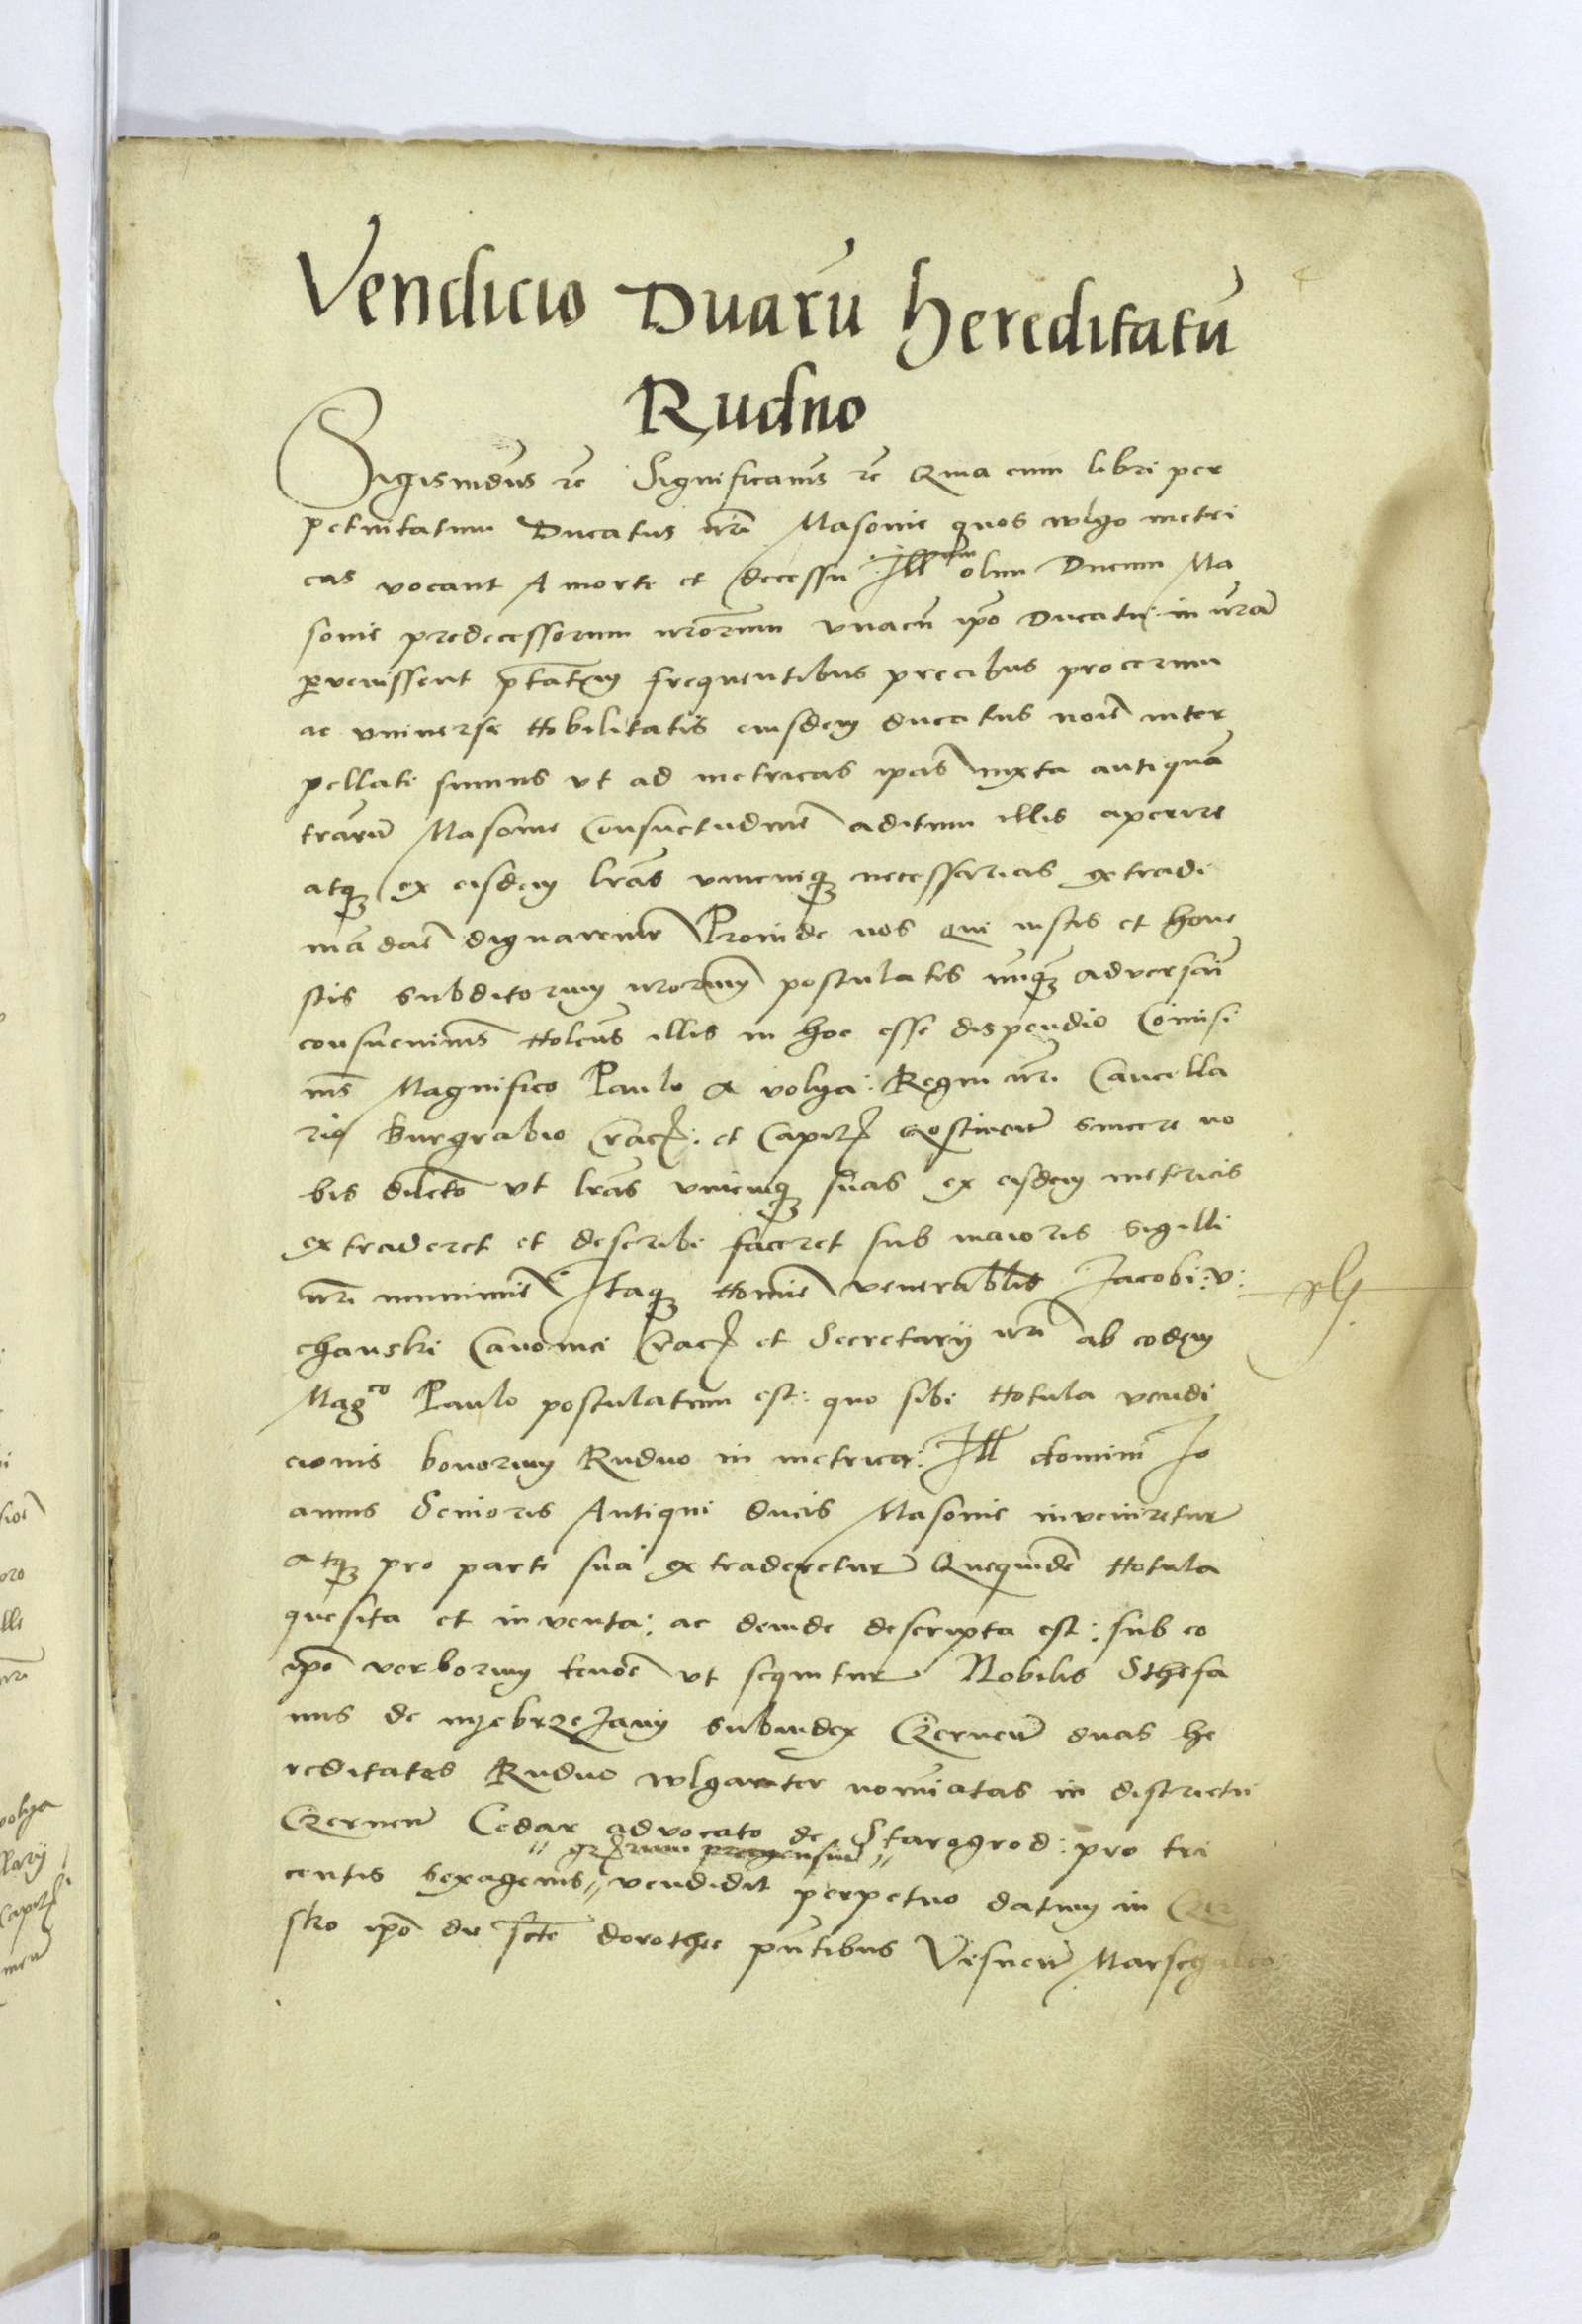 Vendicio Duarū hereditatū
Rudno
Sigismdus rc̄ Significams rc̄ Quia cum libri per
petuitatum Ducatus nrī Masovie quos wlgo metri
cas vocant A morte et decessu Ill olim Ducum Ma
sovie predecessorum nrōrum vnacū ipo Ducatu in nrām
pervenissent ptātem frequentibus precibus procerum
ac vniverse Nobilitatis eiusdem ducatus noīe inter
pellati sumus vt ad metricas ipas iuxta antiquā
trarū Masovie Consuetudinē aditum illis aperire
atq ex eisdem lrās vnicuiq necessarias extradi
mādaē dignaremur Proinde nos qui iustis et hone
stis subditorum nrorum postulatis nunq adversarī
consuevimus Nolētes illis in hoc esse dispendio Comisi
ms Magnifico Paulo a volya: Regni nrī Cancella
rio Burgrabio Crac: et Capit Gostinen sincere no
bis dilecto vt lrās vnicuiq suas ex eisdem metricis
extraderet et describi faceret sub maioris sigilli
nrī munimie Itaq Nomie venerablis Jacobi: v:
chanski Canonici Crac et Secretarij nrī ab eodem
Magco Paulo postulatum est: quo sibi Notula vendi
cionis bonorum Rudno in metrica: Ill domini Jo
annis Senioris Antiqui ducis Masovie inveniretur
atq pro parte sua extraderetur Quequidē Notula
quesita et inventa: ac deinde descripta est: sub eo
ipo verborum tenoē vt sequitur Nobilis Sthefa
nus de nyebrzeJany subiudex Czernen duas he
reditates Rudno wlgariter nominatas in districtu
Czernen Cedar advocato de Starogrod: pro tri
centis sexagenis vendidit perpetuo datum in
stko ipo die scte dorothee pntibus Visnen